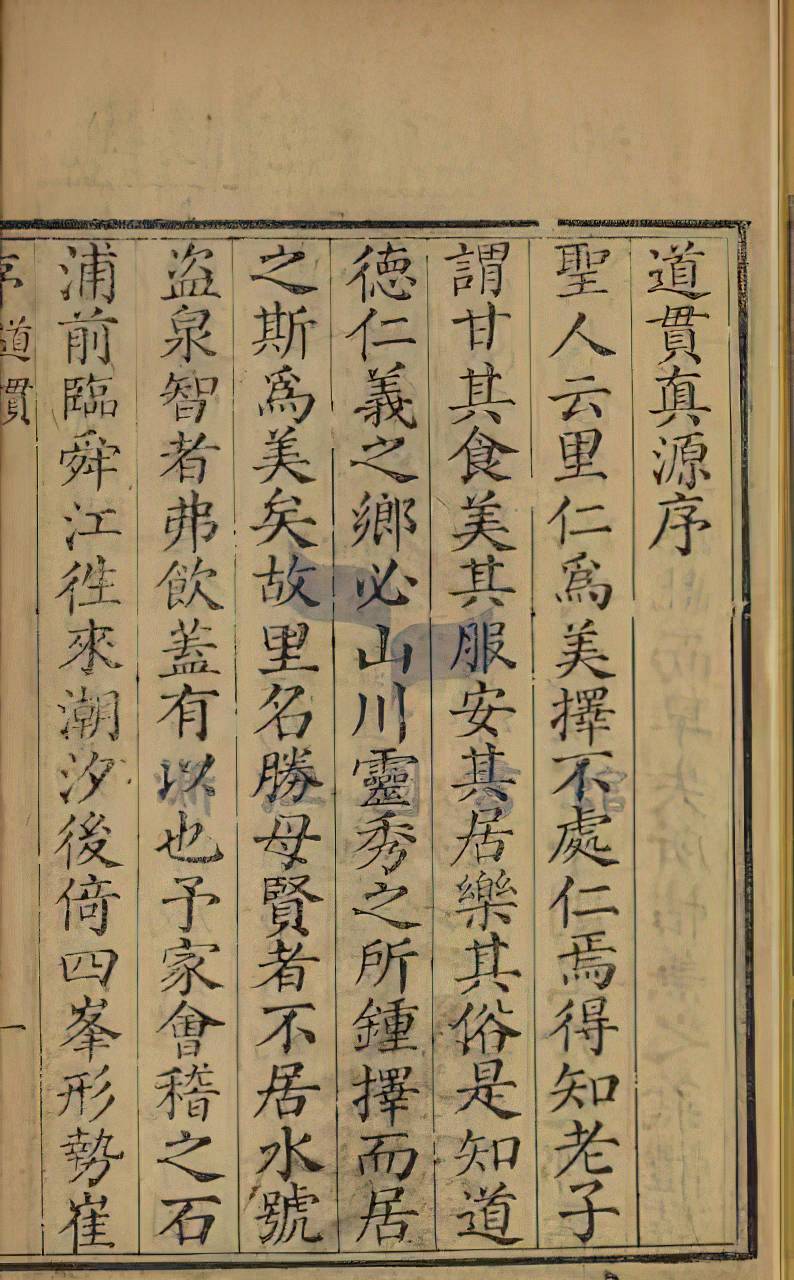 道貫真源序
聖人云里仁爲美擇不處仁焉得知老子
謂甘其食美其服安其居樂其俗是知道
德仁義之鄉必山川靈秀之所鍾擇而居
之斯爲美矣故里名勝母賢者不居水號
盗泉智者弗飲蓋有以也予家會稽之石
浦前臨舜江徃來潮汐後倚四峯形勢崔
序
道貫
一